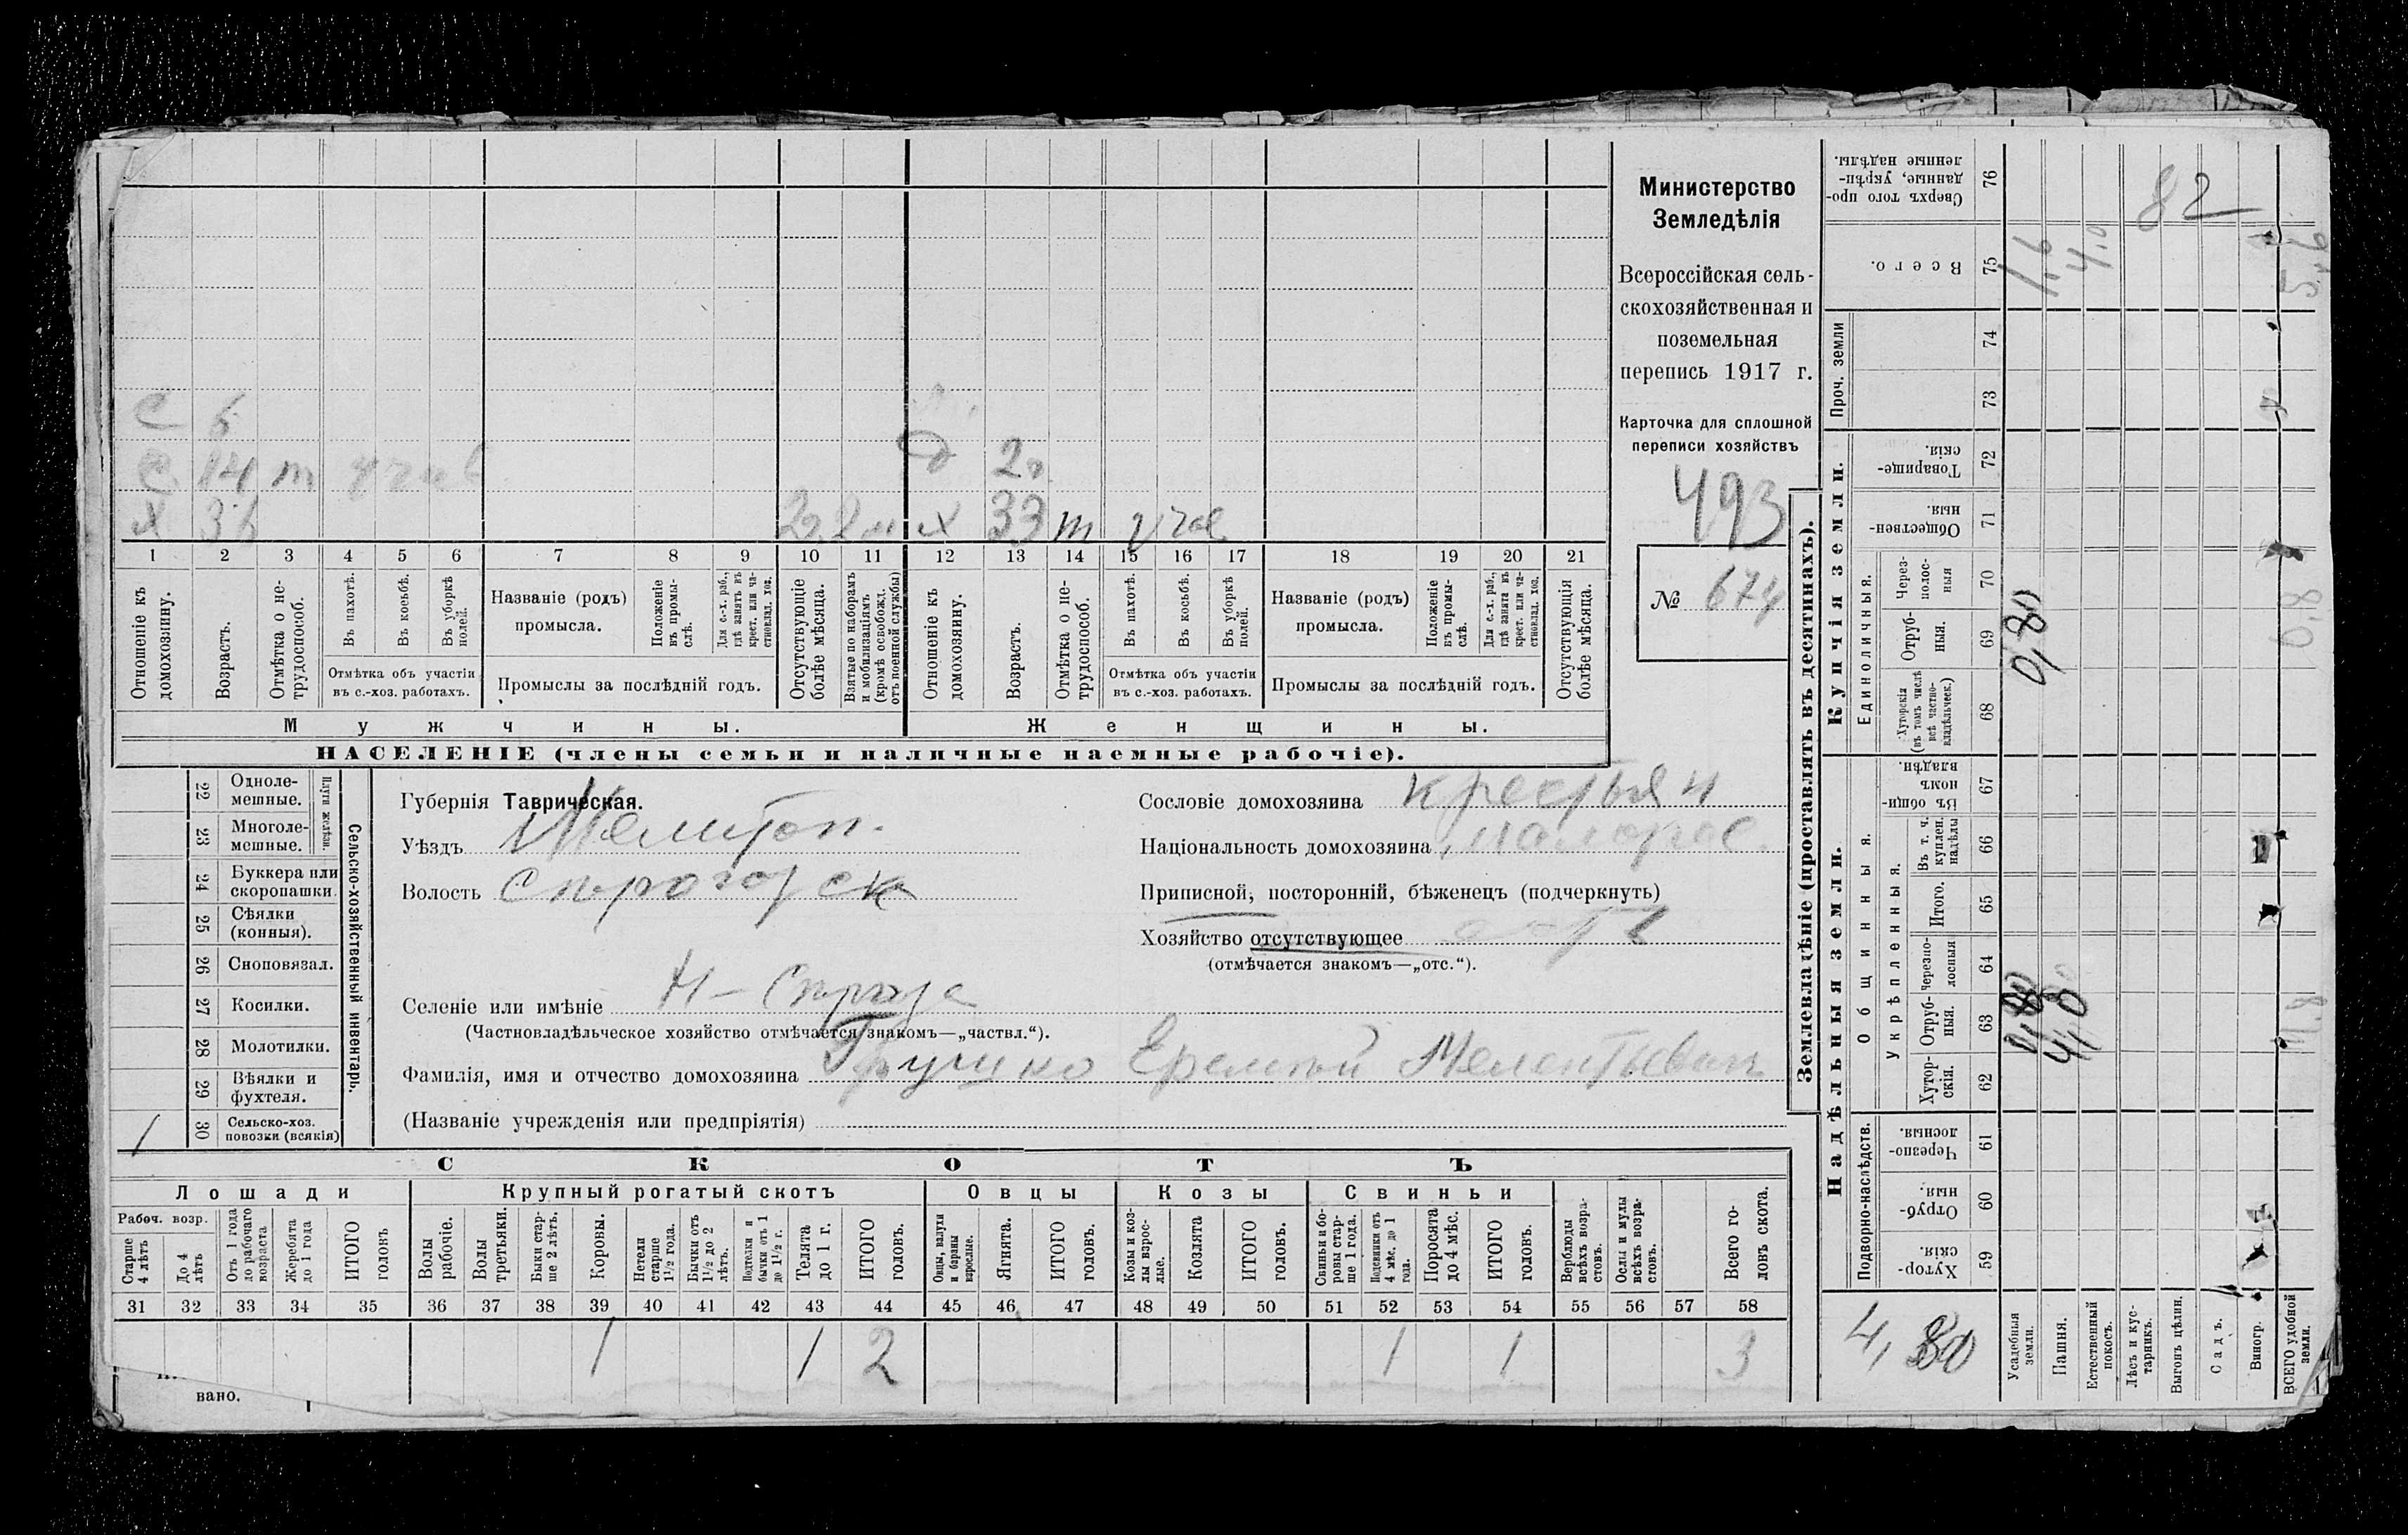 С 6
С 14 т
Х 36 Х 33 т
Д 2
1 2 3 4 5 6 7 8 9 10 11 12 13 14 15 16 17 18 19 20 21
Отношеніе къ домохозяину.
Возрастъ.
Отмѣтка о не-трудоспособ.
Въ пахотѣ.
Въ косьбѣ.
Въ уборкѣ полей.
Отмѣтка объ участіи
въ с.-хоз. работахъ.
Названіе (родъ)
промысла.
Положеніе въ промы-слѣ.
Для с.-х. раб., гдѣ занятъ въ крест. или ча-стновлад. хоз.
Промыслы за послѣдній годъ.
Отсутствующіе болѣе мѣсяца.
Взятые по наборамъ и мобилизаціямъ (кромѣ освобожд. отъ военной службы)
Отношеніе къ домохозяину.
Возрастъ.
Отмѣтка о не-трудоспособ.
Въ пахотѣ.
Въ косьбѣ.
Въ уборкѣ полей.
Отмѣтка объ участіи
въ с.-хоз. работахъ.
Названіе (родъ)
промысла.
Положеніе въ промы-слѣ.
Для с.-х. раб., гдѣ занята въ крест. или ча-стновлад. хоз.
Промыслы за послѣдній годъ.
Отсутствующія болѣе мѣсяца.
Мужчины. Женщины.
НАСЕЛЕНІЕ (члены семьи и наличные наемные рабочіе).
Министерство
Земледѣлія
Всероссійская сель-
скохозяйственная и
поземельная
перепись 1917 г.
Карточка для сплошной
переписи хозяйствъ
493
№ 674
Сельско-хозяйственный инвентарь.
Плуги желѣзн.
22 Одноле-мешные.
23 Многоле-мешные.
24 Буккера или скоропашки.
25 Сѣялки (конныя).
26 Сноповязал.
27 Косилки.
28 Молотилки.
29 Вѣялки и фухтеля.
1 30 Сельско-хоз. повозки (всякія)
Губернія Таврическая.
Уѣздъ Мелитоп.
Волость
Селеніе или имѣніе
(Частновладѣльческое хозяйство отмѣчается знакомъ—„частвл.“).
Фамилія, имя и отчество домохозяина Грушко Еремѣй Мелентьевич
(Названіе учрежденія или предпріятія)
Сословіе домохозяина крестьян
Національность домохозяина малорос.
Приписной, посторонній, бѣженецъ (подчеркнуть)
Хозяйство отсутствующее
(отмѣчается знакомъ—„отс.“).
СКОТЪ
Лошади Крупный рогатый скотъ Овцы Козы Свиньи
Рабоч. возр.
Старше 4 лѣтъ
До 4 лѣтъ
Отъ 1 года до рабочаго возраста
Жеребята до 1 года
ИТОГО головъ
Волы рабочіе.
Волы третьяки.
Быки стар-ше 2 лѣтъ.
Коровы.
Нетели старше 1½ года.
Бычки отъ 1½ до 2 лѣтъ.
Подтелки и бычки отъ 1 до 1½ г.
Телята до 1 г.
ИТОГО головъ.
Овцы, валухи и бараны взрослые.
Ягнята.
ИТОГО головъ.
Козы и коз-лы взрос-лые.
Козлята
ИТОГО головъ.
Свиньи и бо-ровы стар-ше 1 года.
Подсвинки отъ 4 мѣс. до 1 года.
Поросята до 4 мѣс.
ИТОГО головъ.
Верблюды всѣхъ возра-стовъ.
Ослы и мулы всѣхъ возра-стовъ.
Всего го-ловъ скота.
31 32 33 34 35 36 37 38 39 40 41 42 43 44 45 46 47 48 49 50 51 52 53 54 55 56 57 58
1 1 2 1 1 3
вано.
Землевладѣніе (проставлять въ десятинахъ).
Надѣльныя земли. Купчія земли. Проч. земли
Подворно-наслѣдств.
Хутор-скія. 59
Отруб-ныя. 60
Черезпо-лосныя. 61
Общинныя.
Укрѣпленныя.
Хутор-скія. 62
Отруб-ныя. 63
Черезпо-лосныя 64
Итого. 65
Въ т. ч. куплен. надѣлы 66
Въ общи-номъ владѣн. 67
Единоличныя.
Хуторскія (въ томъ числѣ всѣ частно-владѣльческ.) 68
Отруб-ныя. 69
Через-полос-ныя 70
Обществен-ныя. 71
Товарище-скія. 72
73
74
Всего. 75
Сверхъ того про-данные, укрѣп-ленные надѣлы. 76
82
1,6
4,0
5,6
0,80
0,8
4,0
Усадебныя земли.
Пашня.
Естественный покосъ.
Лѣсъ и кус-тарникъ.
Выгонъ цѣлин.
Садъ.
Виногр.
ВСЕГО удобной земли.